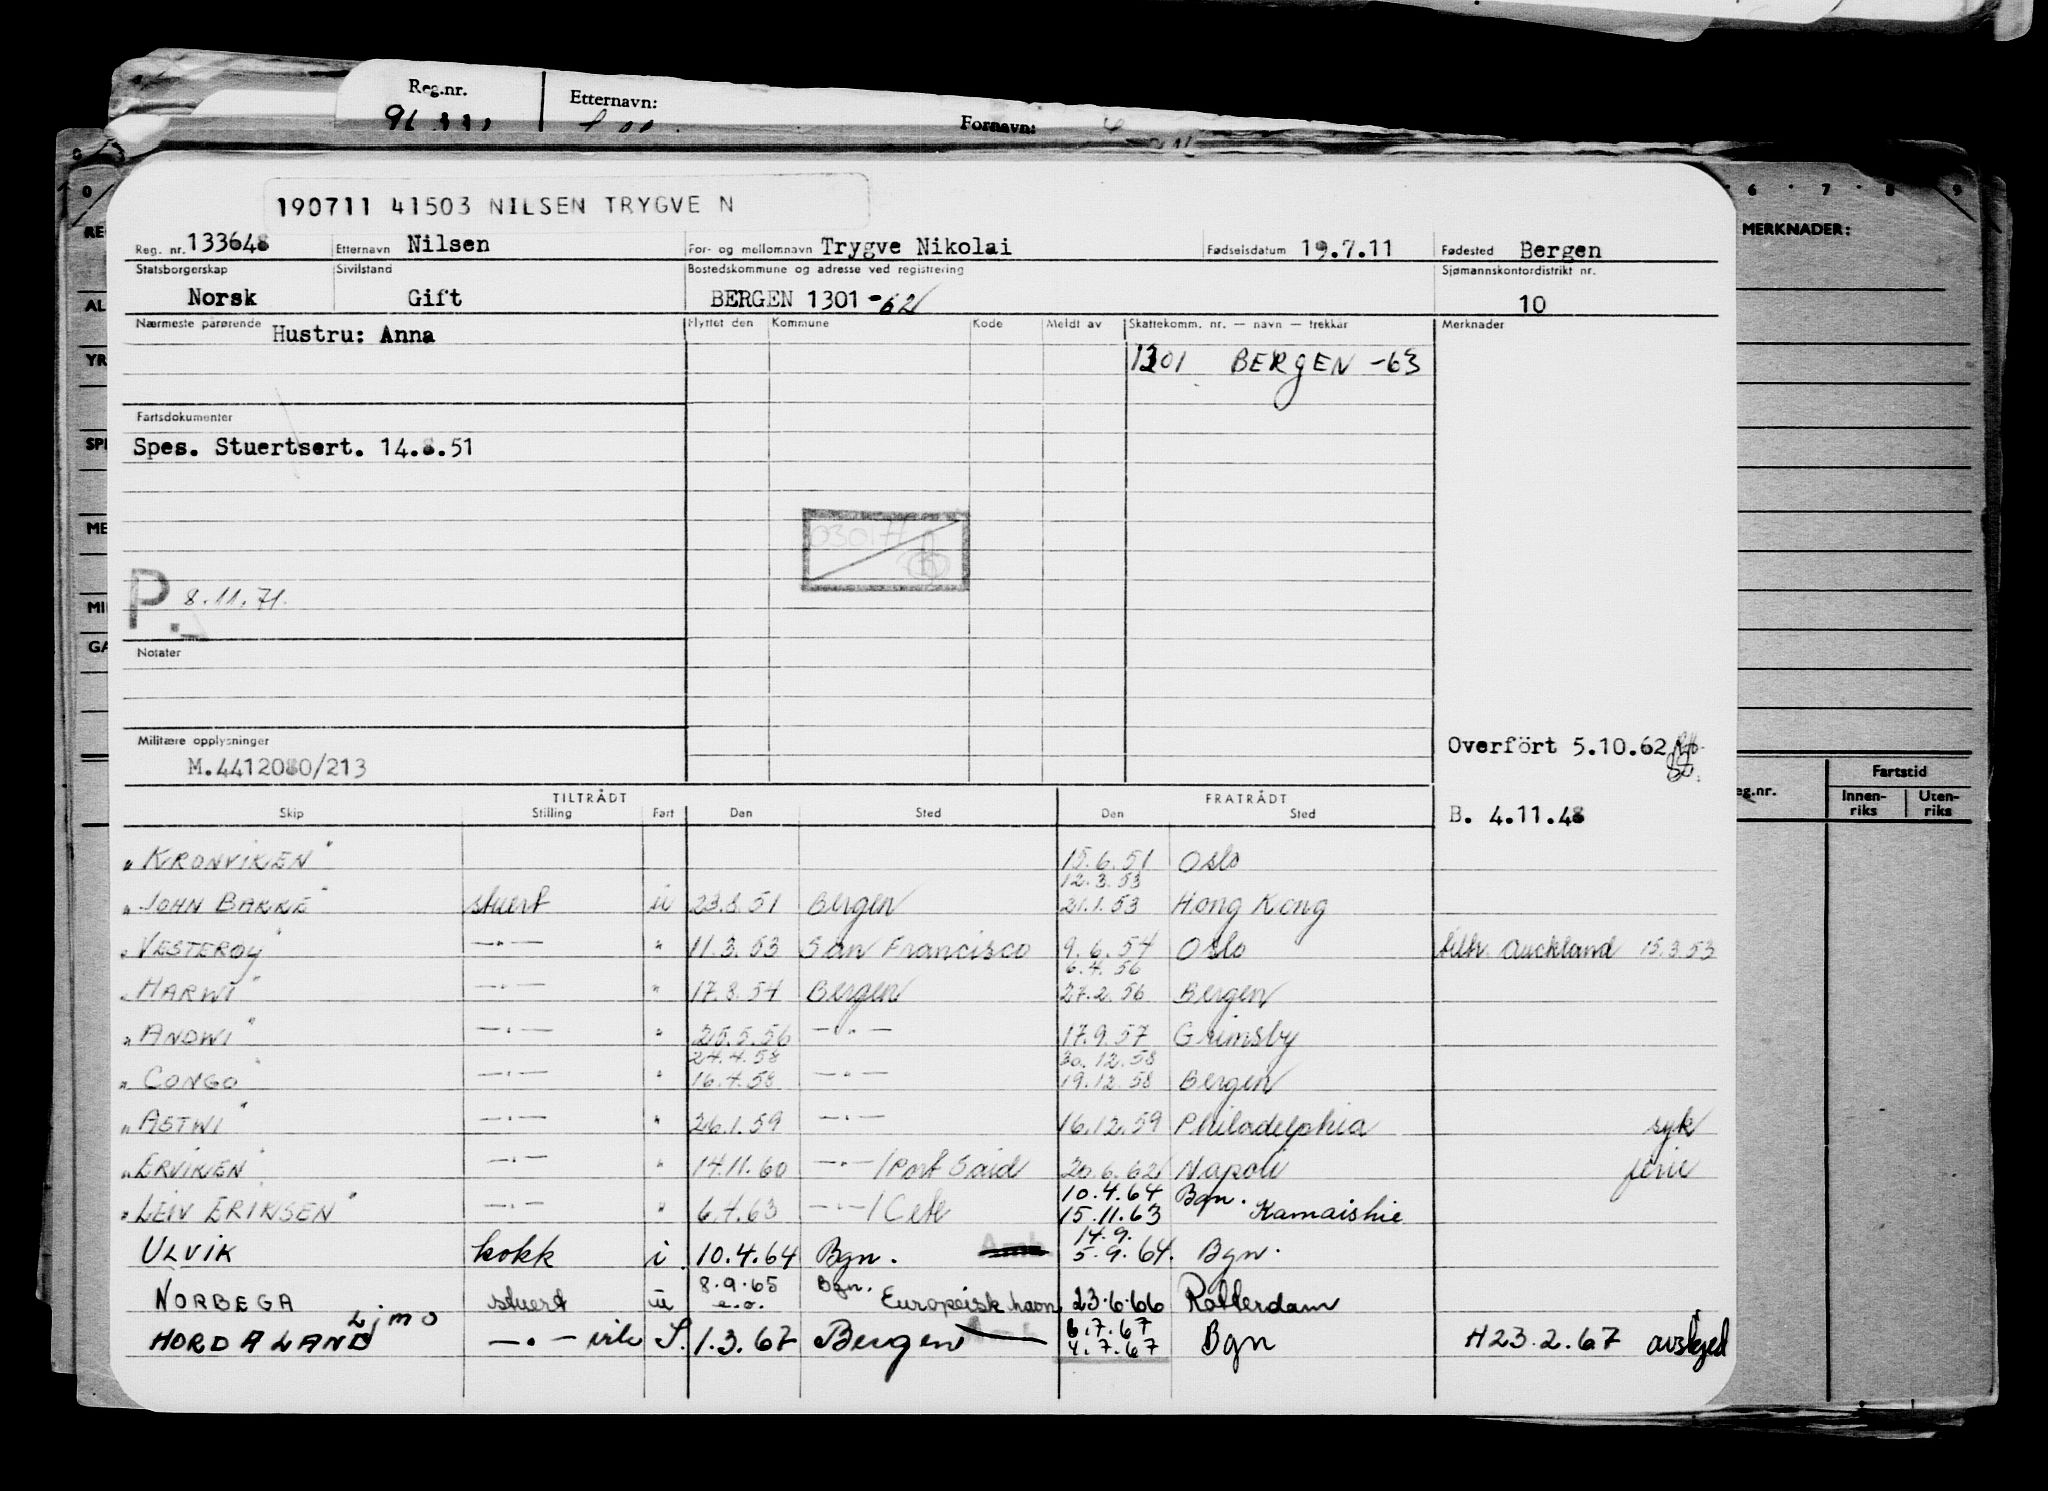 Reg.nr. Etternavn: Fornavn:
190711 41503 NILSEN TRYGVE N
Reg. nr. 133648 Etternavn Nilsen For- og mellomnavn Trygve Nikolai Fødselsdatum 19.7.11 Fødested Bergen
Statsborgerskap Sivilstand Bostedskommune og adresse ved registrering Sjømannskontordistrikt nr.
Norsk Gift BERGEN 1301 -62 10
Nærmeste pårørende Hustru: Anna Flyttet den Kommune Kode Meldt av Skattekomm. nr. — navn — trekkår Merknader
1301 BERGEN -63
Fartsdokumenter
Spes. Stuertsert. 14.8.51
P. 8.11.71.
Notater
Militære opplysninger
M.4412080/213
Overført 5.10.62
B. 4.11.48
TILTRÅDT FRATRÅDT
Skip Stilling Fart Den Sted Den Sted
"KRONVIKEN" 15.6.51 Oslo
12.3.53
"JOHN BAKKE" stuert u 23.8.51 Bergen 21.1.53 Hong Kong
"VESTERØY" —"— " 11.3.53 San Francisco 9.6.54 Oslo tiltr. Auckland 15.3.53
6.4.56
"HARWI" —"— " 17.8.54 Bergen 27.2.56 Bergen
"ANDWI" —"— " 25.5.56 —"— 17.9.57 Grimsby
24.4.58 30.12.58
"CONGO" —"— " 16.4.58 —"— 19.12.58 Bergen
"ASTWI" —"— " 26.1.59 —"— 16.12.59 Philadelphia syk
"ERVIKEN" —"— " 14.11.60 —"— /Port Said 20.6.62 Napoli ferie
10.4.64 Bgn.
"LEIV ERIKSEN" —"— " 6.4.63 —"— / 15.11.63 Kamaishie
14.9.
ULVIK kokk i 10.4.64 Bgn. 5.9.64. Bgn.
8.9.65 Bgn.
NORBEGA stuert u e.o. Europeisk havn 23.6.66 Rotterdam
6.7.67
HORDALAND —"— S. 1.3.67 Bergen 4.7.67 Bgn H23.2.67 avskjed
MERKNADER:
6 7 8 9
Fartstid
Innen-riks Uten-riks